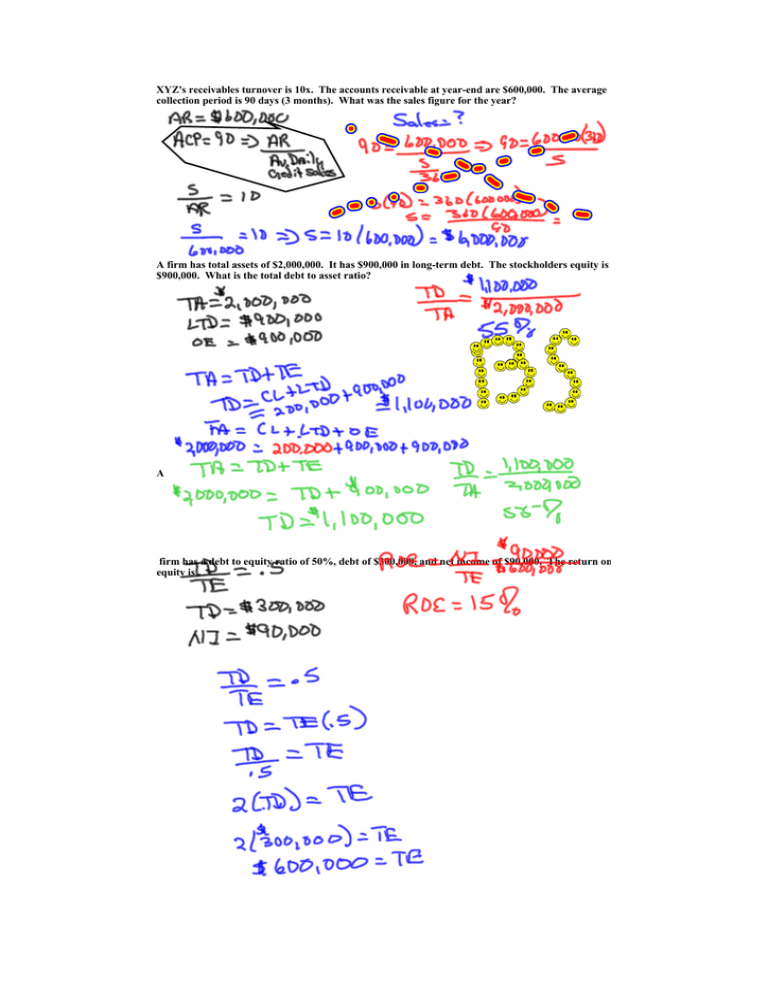 XYZ's receivables turnover is 10x. The accounts receivable at year-end are $600,000. The average
collection period is 90 days (3 months). What was the sales figure for the year?
AR = $600,000
Sales = ?
ACP = 90 => AR
Av. Daily
Credit Sales
90 = 600,000 => 90 = 600
S
S
S/AR = 10
= 360(600,000)
S = 360(600,000)/90 =
S/600,000 = 10 => S = 10(600,000) = $6,000,000
A firm has total assets of $2,000,000. It has $900,000 in long-term debt. The stockholders equity is
$900,000. What is the total debt to asset ratio?
TA = $2,000,000
LTD = $900,000
OE = $900,000
TD/TA = $1,100,000/$2,000,000
55%
BS
TA = TD + TE
TD = CL + LTD
= 200,000 + 900,000 = $1,100,000
TA = CL + LTD + OE
$2,000,000 = 200,000 + 900,000 + 900,000
A
TA = TD + TE
$2,000,000 = TD + $900,000
TD = $1,100,000
TD/TA = 1,100,000/2,000,000
55%
firm has a debt to equity ratio of 50%, debt of $300,000, and net income of $90,000. The return on
equity is
TD/TE = .5
TD = $300,000
NI = $90,000
ROE = NI/TE = $90,000/$600,000
ROE = 15%
TD/TE = .5
TD = TE(.5)
TD/.5 = TE
2(TD) = TE
2($300,000) = TE
$600,000 = TE